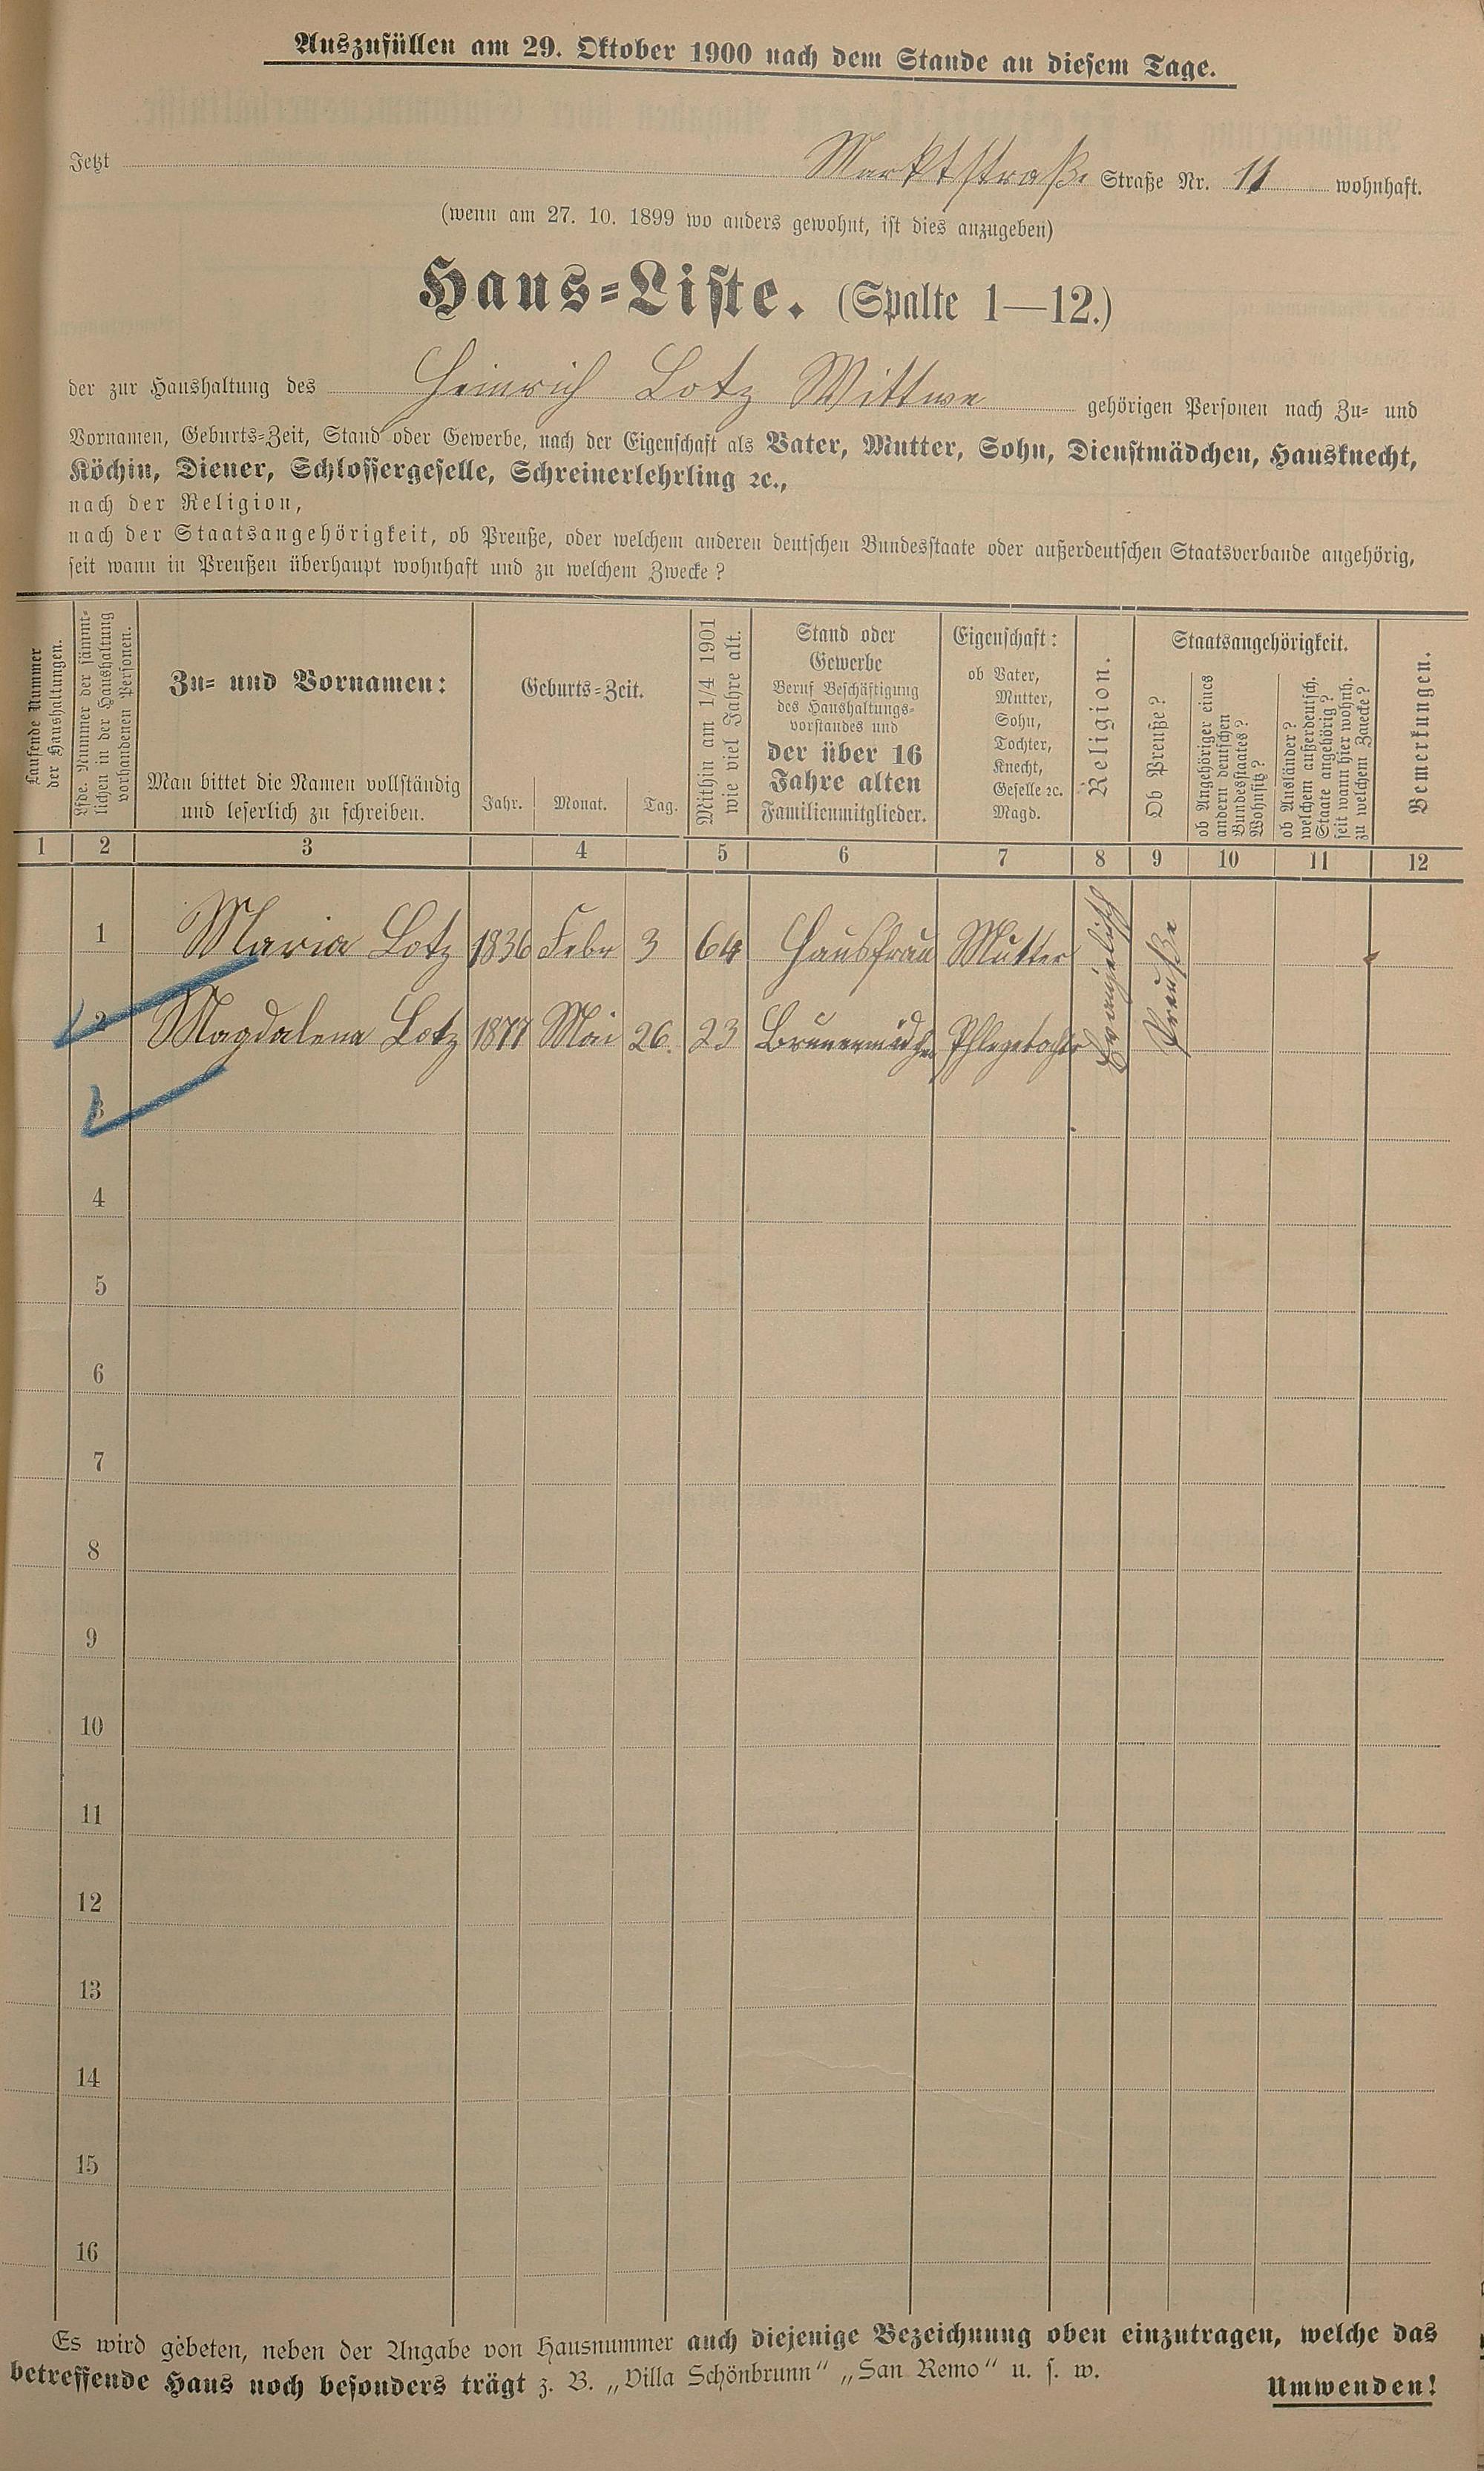 Auszufüllen am 29. Oktober 1900 nach dem Stande an diesem Tage.
Jetzt Marktstraße Straße Nr. 11 wohnhaft.
(wenn am 27. 10. 1899 wo anders gewohnt, ist dies anzugeben)
Haus-Liste. (Spalte 1—12.)
der zur Haushaltung des Heinrich Lotz Wittwe gehörigen Personen nach Zu- und
Vornamen, Geburts-Zeit, Stand oder Gewerbe, nach der Eigenschaft als Vater, Mutter, Sohn, Dienstmädchen, Hausknecht,
Köchin, Diener, Schlossergeselle, Schreinerlehrling ꝛc.,
nach der Religion,
nach der Staatsangehörigkeit, ob Preuße, oder welchem anderen deutschen Bundesstaate oder außerdeutschen Staatsverbande angehörig,
seit wann in Preußen überhaupt wohnhaft und zu welchem Zwecke?
Laufende Nummer
der Haushaltungen.
Lfde. Nummer der sämmt-
lichen in der Haushaltung
vorhandenen Personen.
Zu- und Vornamen:
Man bittet die Namen vollständig
und leserlich zu schreiben.
Geburts-Zeit.
Jahr. Monat. Tag.
Mithin am 1/4 1901
wie viel Jahre alt.
Stand oder
Gewerbe
Beruf Beschäftigung
des Haushaltungs-
vorstandes und
der über 16
Jahre alten
Familienmitglieder.
Eigenschaft:
ob Vater,
Mutter,
Sohn,
Tochter,
Knecht,
Geselle ꝛc.
Magd.
Religion.
Staatsangehörigkeit.
Ob Preuße?
ob Angehöriger eines
andern deutschen
Bundesstaates?
Wohnsitz?
ob Ausländer?
welchem außerdeutsch.
Staate angehörig?
seit wann hier wohnh.
zu welchem Zwecke?
Bemerkungen.
1 2 3 4 5 6 7 8 9 10 11 12
1 Maria Lotz 1836 Febr 3 64 Hausfrau Mutter Evangelisch Preuße
2 Magdalena Lotz 1877 Mai 26. 23 Phlegetochter
3
4
5
6
7
8
9
10
11
12
13
14
15
16
Es wird gebeten, neben der Angabe von Hausnummer auch diejenige Bezeichnung oben einzutragen, welche das
betreffende Haus noch besonders trägt z. B. „Villa Schönbrunn“ „San Remo“ u. s. w.
Umwenden!